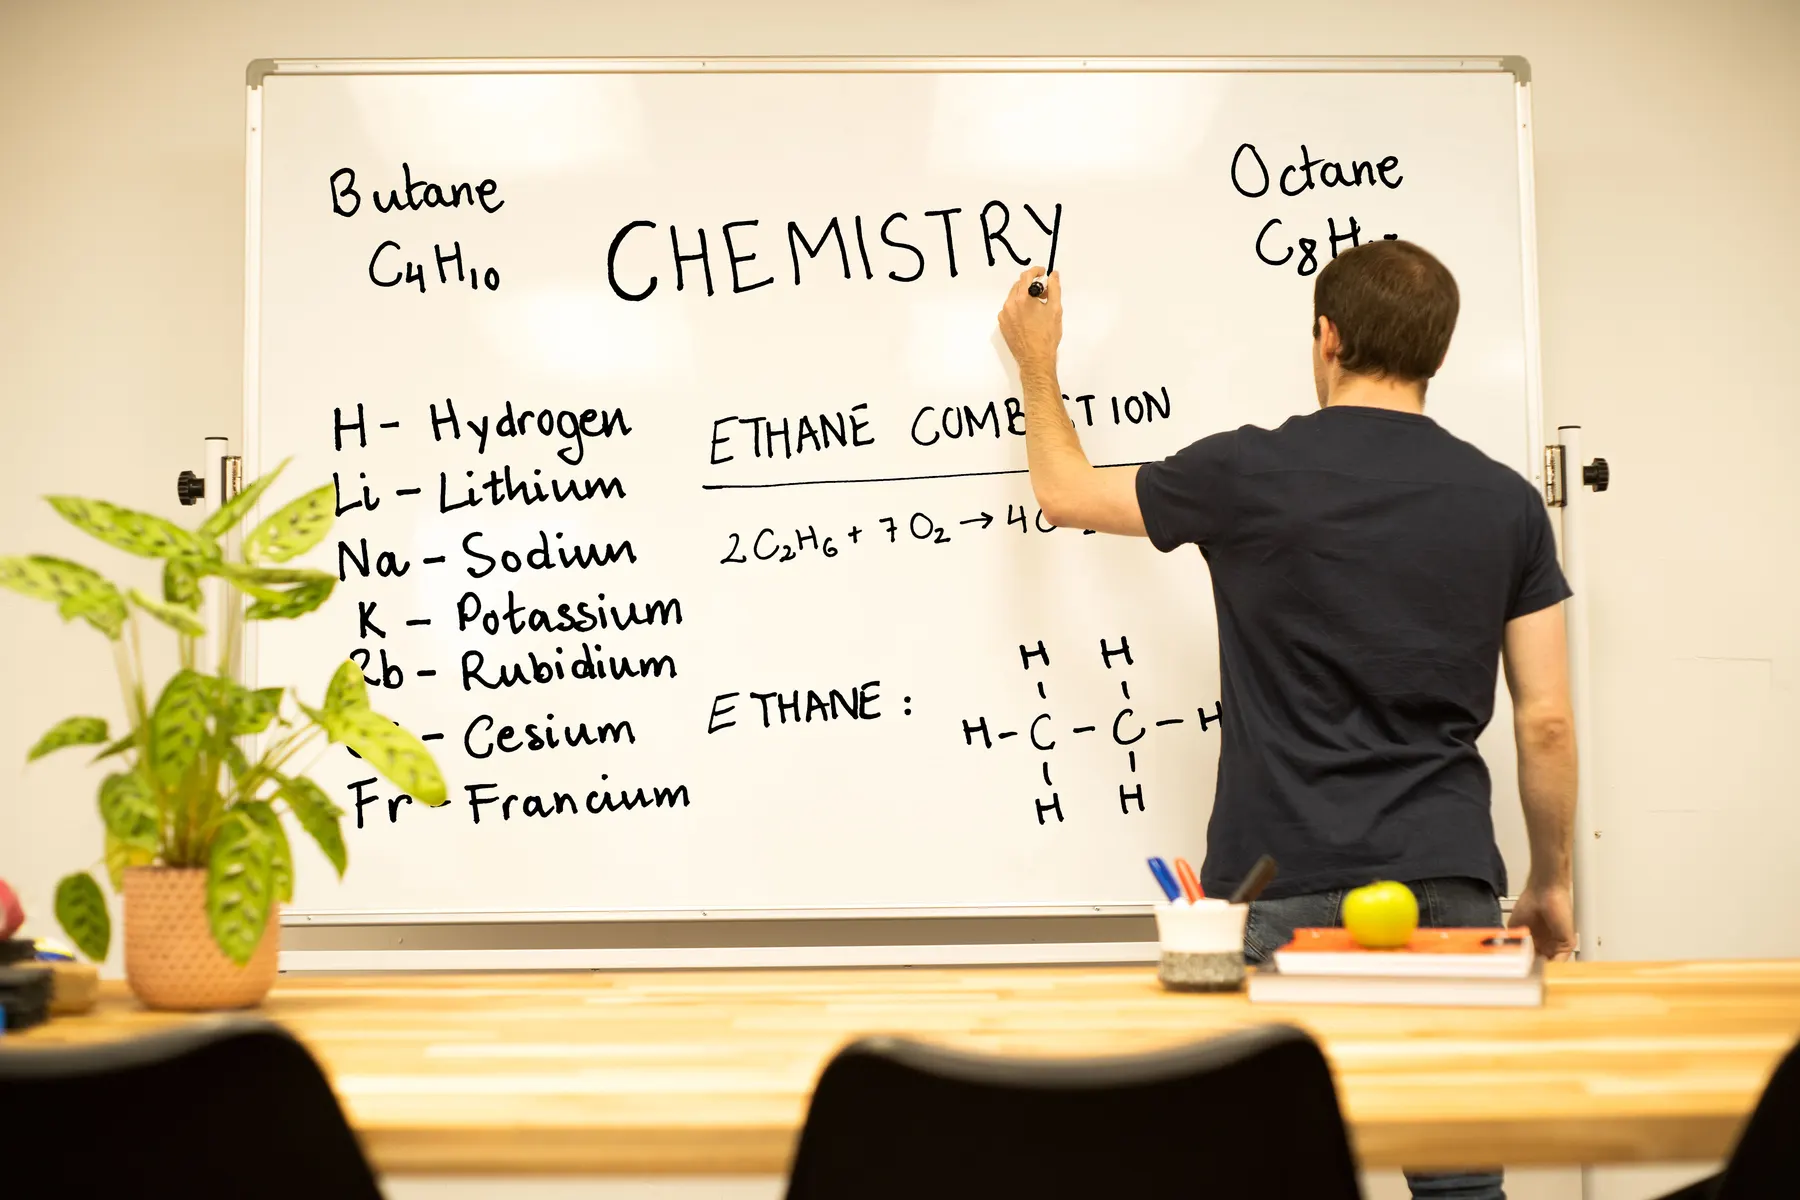 Butane
C₄H₁₀
CHEMISTRY
Octane
C₈H
H - Hydrogen
Li - Lithium
Na - Sodiun
K - Potassium
Rb - Rubidium
- Cesium
Fr - Francium
ETHANE COMBUSTION
2C₂H₆ + 7O₂ → 4C
ETHANE:
H H
H - C - C - H
H H